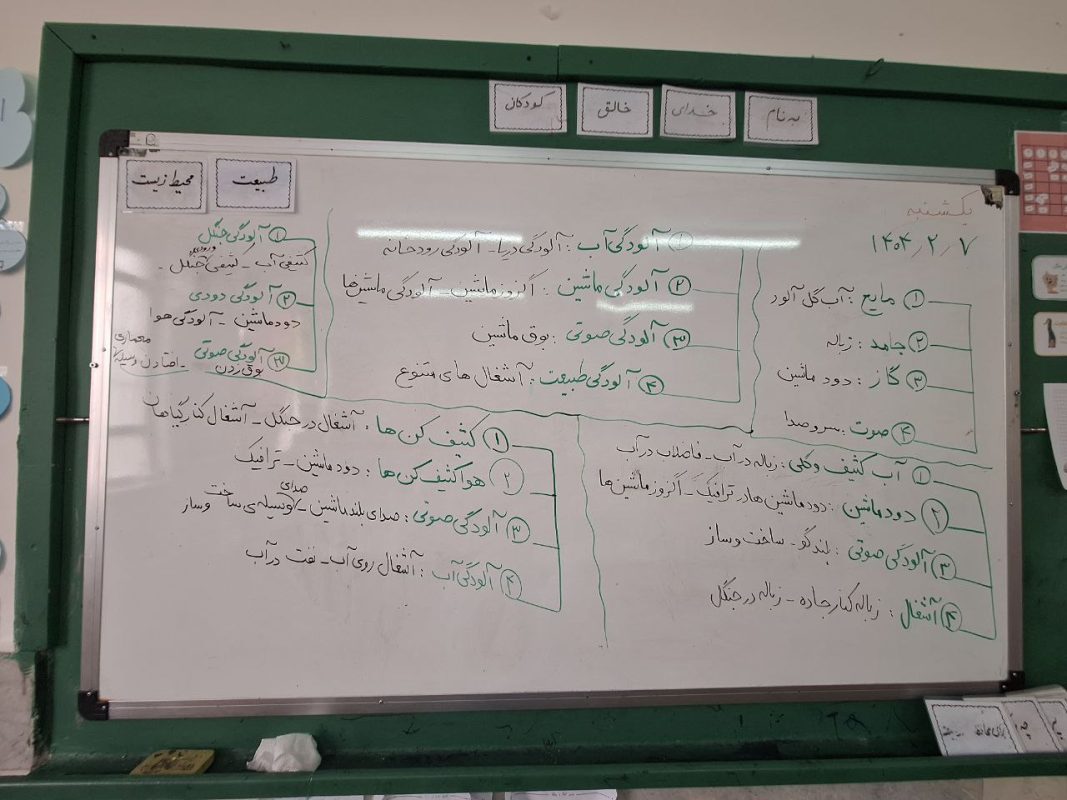 به نام خدای خالق کودکان
طبیعت محیط زیست
یکشنبه
۱۴۰۴٫۲٫۷
① مایع : آب گل آلود
② جامد : زباله
③ گاز : دود ماشین
④ صوت : سر و صدا
① آلودگی آب : آلودگی دریا - آلودگی رودخانه
② آلودگی ماشین : اگزوز ماشین - آلودگی ماشین‌ها
③ آلودگی صوتی : بوق ماشین
④ آلودگی طبیعت : آشغال های متنوع
① آلودگی جنگل
کثیفی آب - کثیفی جنگل -
② آلودگی دودی
دود ماشین - آلودگی هوا
③ آلودگی صوتی
بوق زدن - افتادن وسیله
معماری
① آب کثیف و گلی : زباله در آب - فاضلاب در آب
② دود ماشین : دود ماشین ها در ترافیک - اگزوز ماشین ها
③ آلودگی صوتی : بلندگو - ساخت و ساز
④ آشغال : زباله کنار جاده - زباله در جنگل
① کثیف کن ها : آشغال در جنگل - آشغال کنار گیاهان
② هوا کثیف کن ها : دود ماشین - ترافیک
③ آلودگی صوتی : صدای بلند ماشین - صدای وسیله ی ساخت و ساز
④ آلودگی آب : آشغال روی آب - نفت در آب